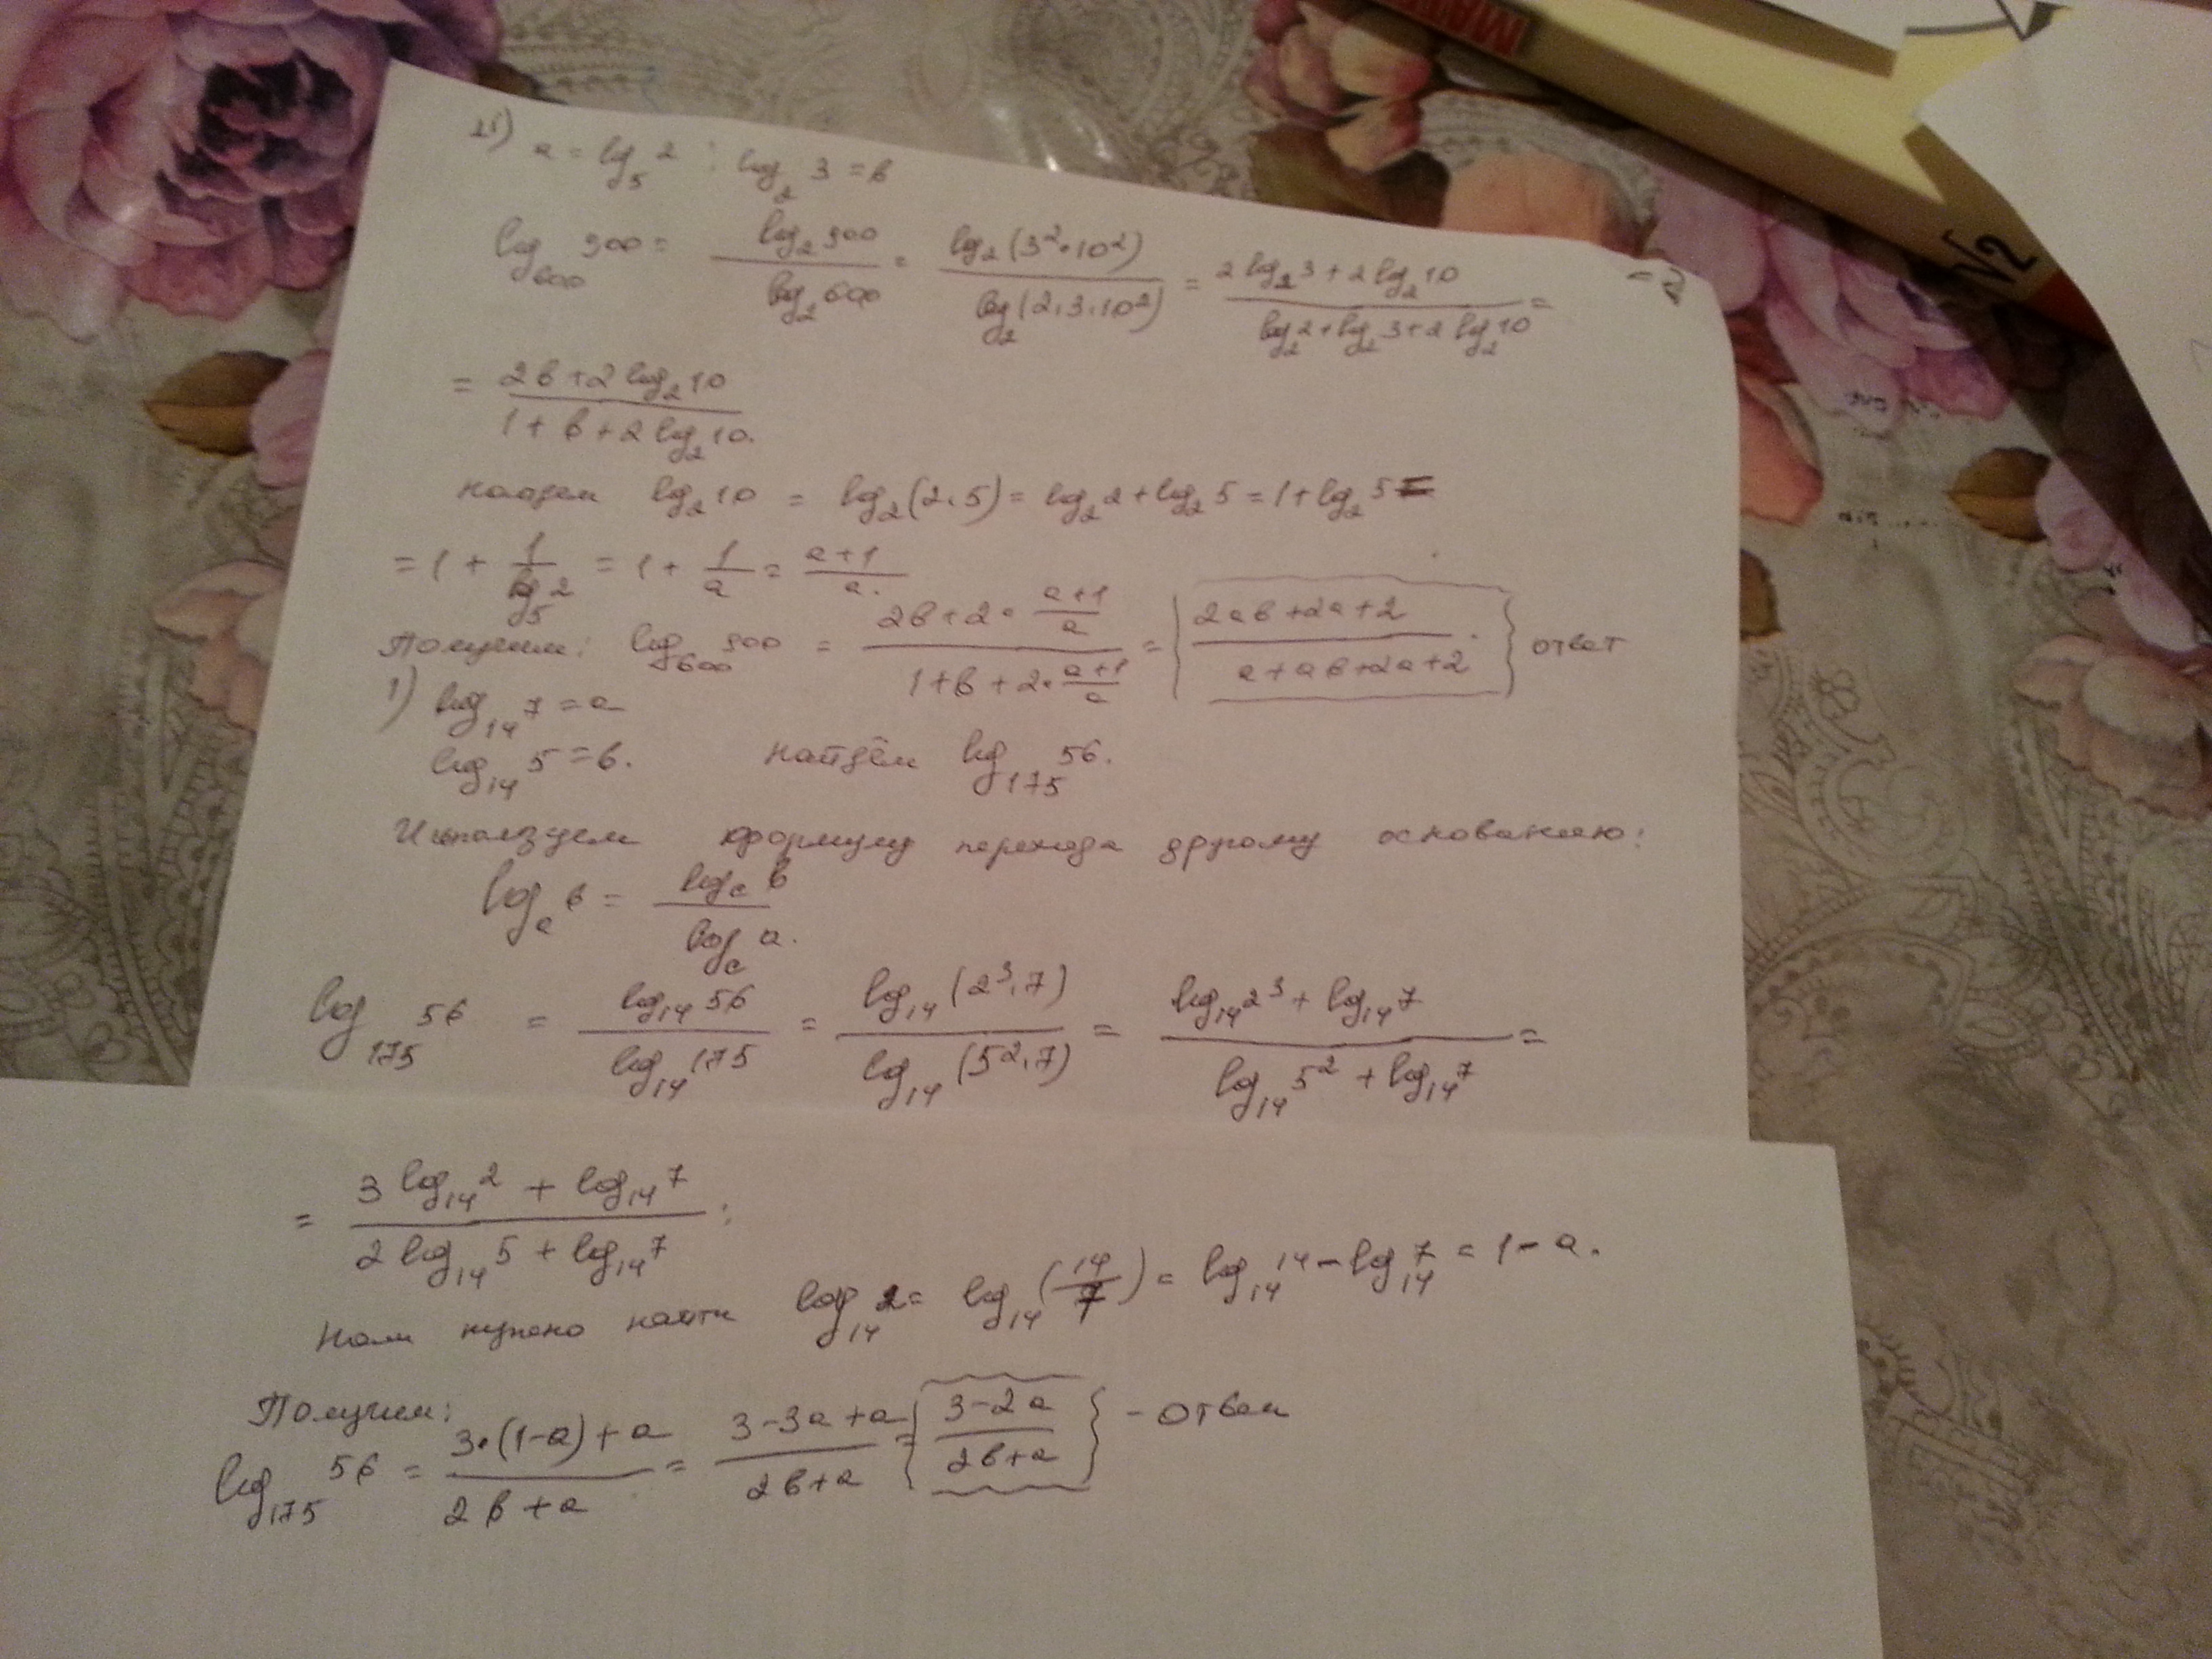 21) a = log₅ 2 ; log₂ 3 = b
log₆₀₀ 900 = log₂ 900 / log₂ 600 = log₂ (3² · 10²) / log₂ (2·3·10²) = (2 log₂ 3 + 2 log₂ 10) / (log₂ 2 + log₂ 3 + 2 log₂ 10) =
= (2b + 2 log₂ 10) / (1 + b + 2 log₂ 10).
найдем log₂ 10 = log₂ (2·5) = log₂ 2 + log₂ 5 = 1 + log₂ 5 =
= 1 + 1 / log₅ 2 = 1 + 1/a = (a+1)/a.
Получим: log₆₀₀ 900 = (2b + 2 · (a+1)/a) / (1 + b + 2 · (a+1)/a) = { (2ab + 2a + 2) / (a + ab + 2a + 2) } ответ
1) log₁₄ 7 = a
log₁₄ 5 = b. найдём log₁₇₅ 56.
Используем формулу перехода другому основанию:
logₐ b = log_c b / log_c a.
log₁₇₅ 56 = log₁₄ 56 / log₁₄ 175 = log₁₄ (2³·7) / log₁₄ (5²·7) = (log₁₄ 2³ + log₁₄ 7) / (log₁₄ 5² + log₁₄ 7) =
= (3 log₁₄ 2 + log₁₄ 7) / (2 log₁₄ 5 + log₁₄ 7) ;
Нам нужно найти log₁₄ 2 = log₁₄ (14/7) = log₁₄ 14 – log₁₄ 7 = 1 – a.
Получим:
log₁₇₅ 56 = (3·(1–a) + a) / (2b + a) = (3 – 3a + a) / (2b + a) = { (3 – 2a) / (2b + a) } – ответ
√2